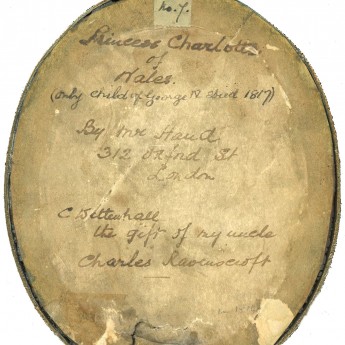 No. 7.
Princess Charlotte
of
Wales.
(only child of George IV died 1817)
By Mr Hand
312 Oxford St
London
C Wittenhall
the gift of my uncle
Charles Ravenscroft